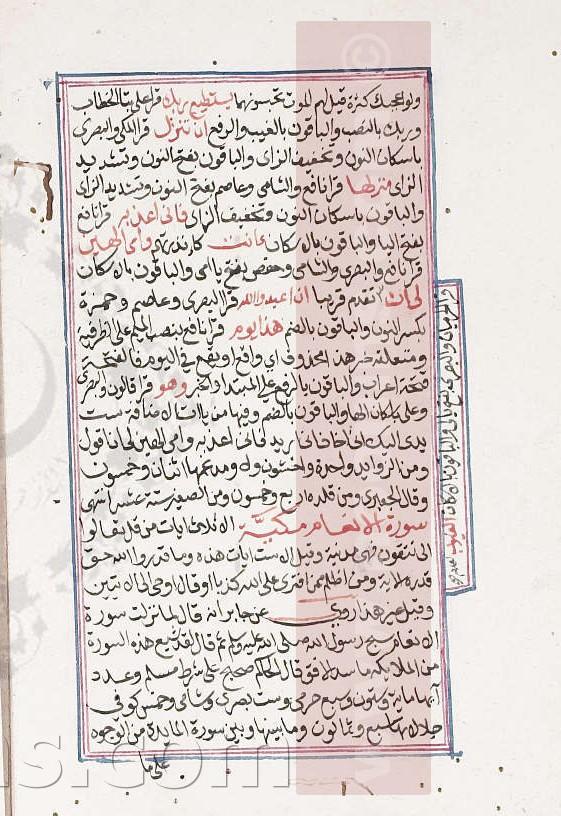 ولو اعجبك كثرة قيل لهم للموت تحبسونهما يستطيع ربك قرا على بتا الخطاب
وربك بالنصب والباقون بالغيب والرفع ان تنزل قرا المكي والبصري
باسكان النون وتخفيف الزاى والباقون بفتح النون وتشديد
الزاى منزلها قرا نافع والشامي وعاصم بفتح النون وتشديد الزاى
والباقون باسكان النون وتخفيف الزاى فاني اعذبه قرا نافع
بفتح اليا والباقون بالاسكان ءانت كاءنذرتهم وامي الهين
قرا نافع والبصري والشامي وحفص بفتح ياامى والباقون بالاسكان
لي ان تقدم قريبا ان اعبدوا الله قرا البصري وعاصم وحمزة
بكسر النون والباقون بالضم هذا يوم قرا نافع بنصب الميم على الظرفية
ومتعلقه خبر هذا محذوف اي واقع او يقع في اليوم فالفتحة
فتحة اعراب والباقون بالرفع على المبتدا والخبر وهو قرا قالون وبصري
وعلى باسكان الها والباقون بالضم وفيها من ياات الاضافة ست
يدي اليك اني اخاف اني اريد فاني اعذبه وامي الهين لي ان اقول
ومن الزوايد واحدة واخشون ولا ومدغمها اثنان وخمسون
وقال الجعبري ومن قلده اربع وخمسون ومن الصغير ستة عشر انتهى
سورة الانعام مكية الا ثلاث ايات من قل تعالوا
الى تتقون فهي مدنية وقيل الا ست ايات هذه وما قدروا الله حق
قدره الاية ومن اظلم ممن افترى على الله كذبا او قال اوحي الي الايتين
وقيل غير هذا روي عن جابر انه قال لما نزلت سورة
الانعام سبح رسول الله صلى الله عليه وسلم ثم قال لقد شيع هذه السورة
من الملايكة ما سد الافق قال الحاكم صحيح على شرط مسلم وعدد
آيها ماية وستون وسبع حرمي وست بصري وشامي وخمس كوفي
جلالاتها سبع وثمانون وما بينها وبين سورة المايدة من الوجوه
على ما
الغيوب
s.com